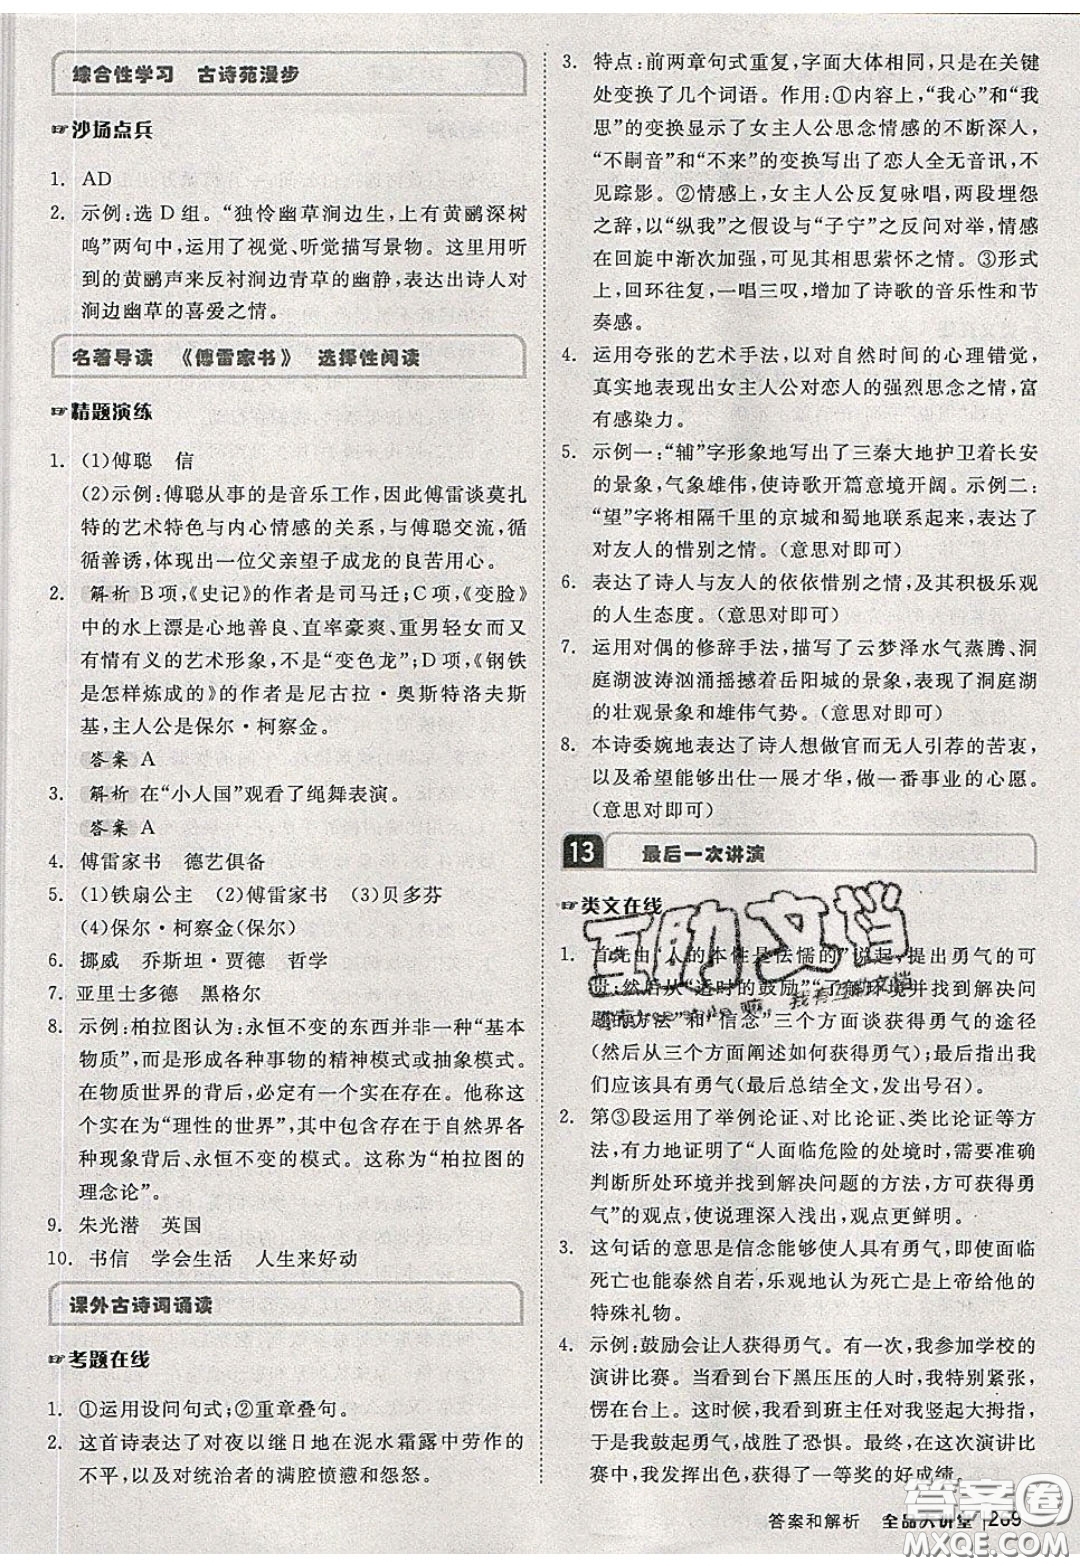 综合性学习　古诗苑漫步
☞沙场点兵
1. AD
2. 示例:选 D 组。“独怜幽草涧边生,上有黄鹂深树
鸣”两句中,运用了视觉、听觉描写景物。这里用听
到的黄鹂声来反衬涧边青草的幽静,表达出诗人对
涧边幽草的喜爱之情。
名著导读　《傅雷家书》　选择性阅读
☞精题演练
1. (1)傅聪　信
(2)示例:傅聪从事的是音乐工作,因此傅雷谈莫扎
特的艺术特色与内心情感的关系,与傅聪交流,循
循善诱,体现出一位父亲望子成龙的良苦用心。
2. 解析 B项,《史记》的作者是司马迁;C项,《变脸》
中的水上漂是心地善良、直率豪爽、重男轻女而又
有情有义的艺术形象,不是“变色龙”;D项,《钢铁
是怎样炼成的》的作者是尼古拉·奥斯特洛夫斯
基,主人公是保尔·柯察金。
答案 A
3. 解析 在“小人国”观看了绳舞表演。
答案 A
4. 傅雷家书　德艺俱备
5. (1)铁扇公主　(2)傅雷家书　(3)贝多芬
(4)保尔·柯察金(保尔)
6. 挪威　乔斯坦·贾德　哲学
7. 亚里士多德　黑格尔
8. 示例:柏拉图认为:永恒不变的东西并非一种“基本
物质”,而是形成各种事物的精神模式或抽象模式。
在物质世界的背后,必定有一个实在存在。他称这
个实在为“理性的世界”,其中包含存在于自然界各
种现象背后、永恒不变的模式。这就是“柏拉图的
理念论”。
9. 朱光潜　英国
10. 书信　学会生活　人生来好动
课外古诗词诵读
☞考题在线
1. ①运用设问句式;②重章叠句。
2. 这首诗表达了对夜以继日地在泥水霜露中劳作的
不平,以及对统治者的满腔愤懑和怨怒。
3. 特点:前两章句式重复,字面大体相同,只是在关键
处变换了几个词语。作用:①内容上,“我心”和“我
思”的变换显示了女主人公思念情感的不断深入,
“不嗣音”和“不来”的变换写出了恋人全无音讯,不
见踪影。②情感上,女主人公反复咏唱,两段埋怨
之辞,以“纵我”之假设与“子宁”之反问对举,情感
在回旋中渐次加强,可见其相思萦怀之情。③形式
上,回环往复,一唱三叹,增加了诗歌的音乐性和节
奏感。
4. 运用夸张的艺术手法,以对自然时间的心理错觉,
真实地表现出女主人公对恋人的强烈思念之情,富
有感染力。
5. 示例一:“辅”字形象地写出了三秦大地护卫着长安
的景象,气象雄伟,使诗歌开篇意境开阔。示例二:
“望”字将相隔千里的京城和蜀地联系起来,表达了
对友人的惜别之情。(意思对即可)
6. 表达了诗人与友人的依依惜别之情,及其积极乐观
的人生态度。(意思对即可)
7. 运用对偶的修辞手法,描写了云梦泽水气蒸腾、洞
庭湖波涛汹涌摇撼着岳阳城的景象,表现了洞庭湖
的壮观景象和雄伟气势。(意思对即可)
8. 本诗委婉地表达了诗人想做官而无人引荐的苦衷,
以及希望能够出仕一展才华,做一番事业的心愿。
(意思对即可)
13　最后一次讲演
☞类文在线
1. 首先由“人的本性是怯懦的”说起,提出勇气的可
贵;然后从“适时的鼓励”“了解环境并找到解决问
题的方法”和“信念”三个方面谈获得勇气的途径
(然后从三个方面阐述如何获得勇气);最后指出我
们应该具有勇气(最后总结全文,发出号召)。
2. 第③段运用了举例论证、对比论证、类比论证等方
法,有力地证明了“人面临危险的处境时,要学会
判断所处环境并找到解决问题的方法,方可获得勇
气”的观点,使说理深入浅出,观点更鲜明。
3. 这句话的意思是信念能使人具有勇气,即使面临
死亡也能泰然自若,乐观地认为死亡是上帝给他的
特殊礼物。
4. 示例:鼓励会让人获得勇气。有一次,我参加学校的
演讲比赛。当看到台下黑压压的人时,我特别害怕,
愣在台上。这时候,我想到班主任对我竖起大拇指,
于是我鼓起勇气,战胜了恐惧。最终,在这次演讲比
赛中,我发挥出色,获得了一等奖的好成绩。
互助文档
答案和解析　全品大讲堂　269
答案圈
MXQE.COM